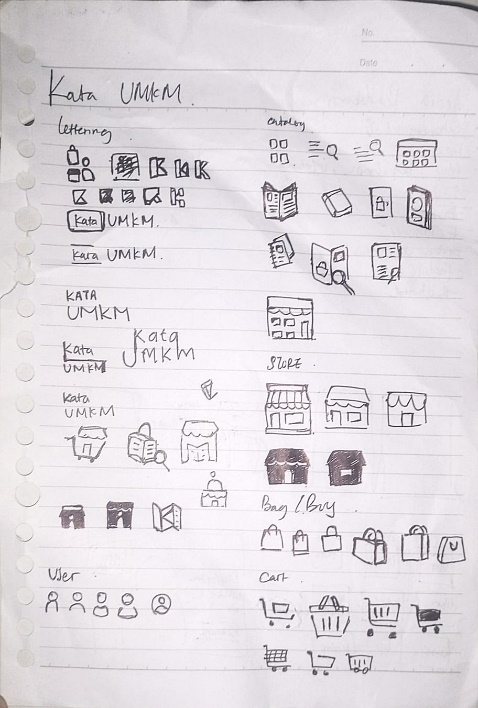 No.
Date
Kata UMKM.
lettering
K K K
K K
Kata UMKM.
Kata UMKM.
KATA
UMKM
Kata
UMKM
Kata
UMKM
Kata
UMKM
User
catalog
STORE.
Bag / Buy
Cart